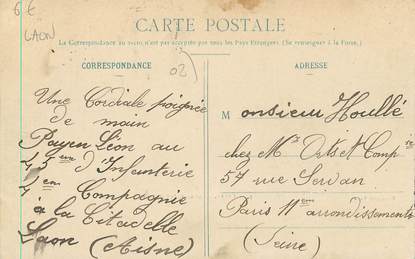 6 €
LAON
CARTE POSTALE
La Correspondance au verso n'est pas acceptée par tous les Pays Etrangers. (Se renseigner à la Poste.)
CORRESPONDANCE
02
Une Cordiale poignée
de main
Payen Léon au
45ème d'Infanterie
4ème Compagnie
à la Citadelle
Laon (Aisne)
ADRESSE
Monsieur Houllé
chez Mr et Compie
57 rue Servan
Paris 11em arrondissement
(Seine)